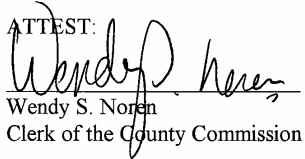 ATTEST:
Wendy S. Noren
Wendy S. Noren
Clerk of the County Commission